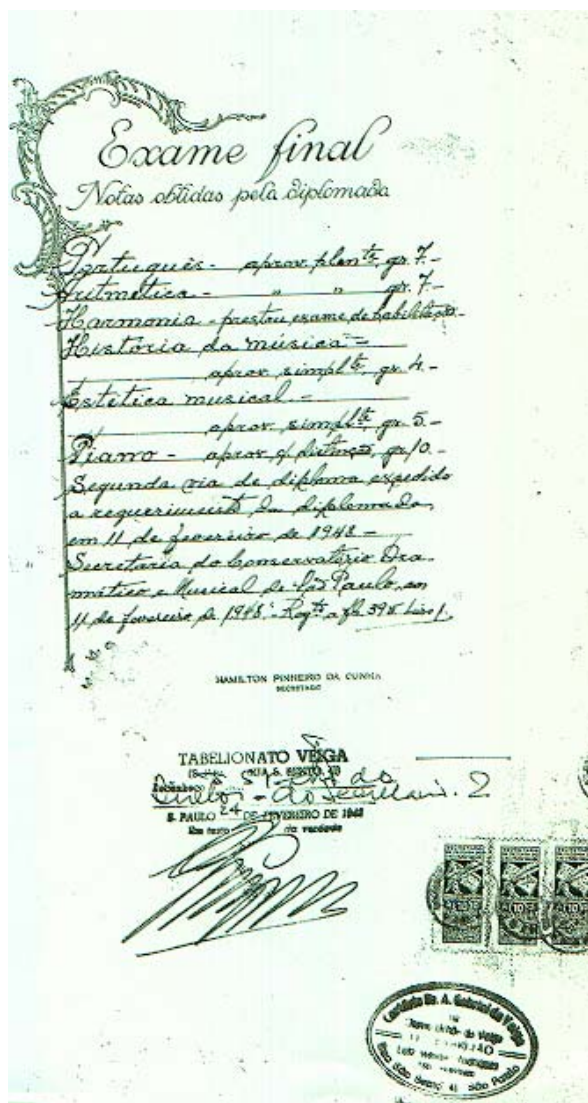 Exame final
Notas obtidas pela diplomada
Português - aprov. plente, gr. 7.-
Aritmética - " " gr. 7-
Harmonia - prestou exame de habilitação.
História da música -
aprov. simplte, gr. 4.-
Estetica musical. -
aprov. simplte, gr. 5.-
Piano - aprov. c/ distinção, gr. 10.-
Segunda via de diploma expedido
a requerimento da diplomada,
em 11 de fevereiro de 1948 -
Secretaria do Conservatório Dra-
mático e Musical de São Paulo, em
11 de fevereiro de 1948. Regto a fl. 398 Livro 1.
HAMILTON PINHEIRO DA CUNHA
SECRETARIO
TABELIONATO VEIGA
(RUA S. BENTO, 41)
Reconheço
S. PAULO 24 DE FEVEREIRO DE 1948
Em testo da verdade
Cartório Dr. A. Gabriel da Veiga
Rua São Bento, 41 São Paulo